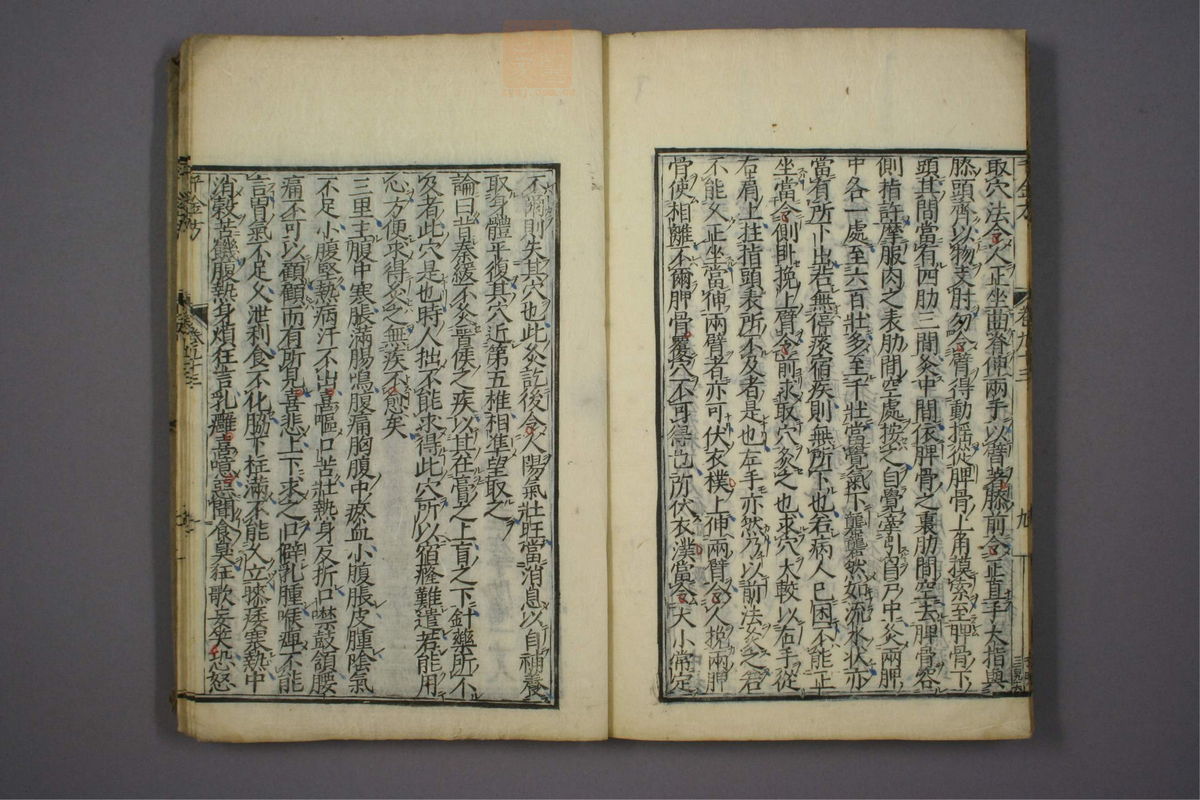 取穴法令人正坐曲脊伸兩手以臂著膝前令正直手大指與
膝頭齊以物支肘勿令臂得動搖從胛骨上角摸索至胛骨下
頭其間當有四肋三間灸中間依胛骨之裏肋間空去胛骨容
側指許摩䐃肉之表肋間空處按之自覺牽引胷乃中灸兩胛
中各一處至六百壯多至千壯當覺氣下礱礱然如流水狀亦
當有所下出若無停痰宿疾則無所下也若病人已困不能正
坐當令側臥挽上臂令前求取穴灸之也求穴大較以右手從
右肩上住指頭表所不及者是也左手亦然乃以前法灸之若
不能久正坐當伸兩臂者亦可伏衣樸上伸兩臂令人挽兩胛
骨使相離不爾胛骨覆穴不可得也所伏衣濮當令大小常定
不爾則失其穴也此灸訖後令人陽氣壯旺當消息以自補養
取身體平復其穴近第五椎相準望取之
論曰昔秦緩不救晉侯之疾以其在膏之上肓之下針藥所不
及者此穴是也時人拙不能求得此穴所以宿痾難遣若能用
心方便求得灸之無疾不愈矣
三里主腹中寒脹滿腸鳴腹痛胸腹中瘀血小腹脹皮腫陰氣
不足小腹堅熱病汗不出喜嘔口苦壯熱身反折口噤鼓頷腰
痛不可以顧顧而有所見喜悲上下求之口僻乳腫喉痺不能
言胃氣不足久泄利食不化脇下柱滿不能久立膝痿寒熱中
消穀苦饑腹熱身煩狂言乳癰喜噫惡聞食臭狂歌妄笑恐怒
千金方